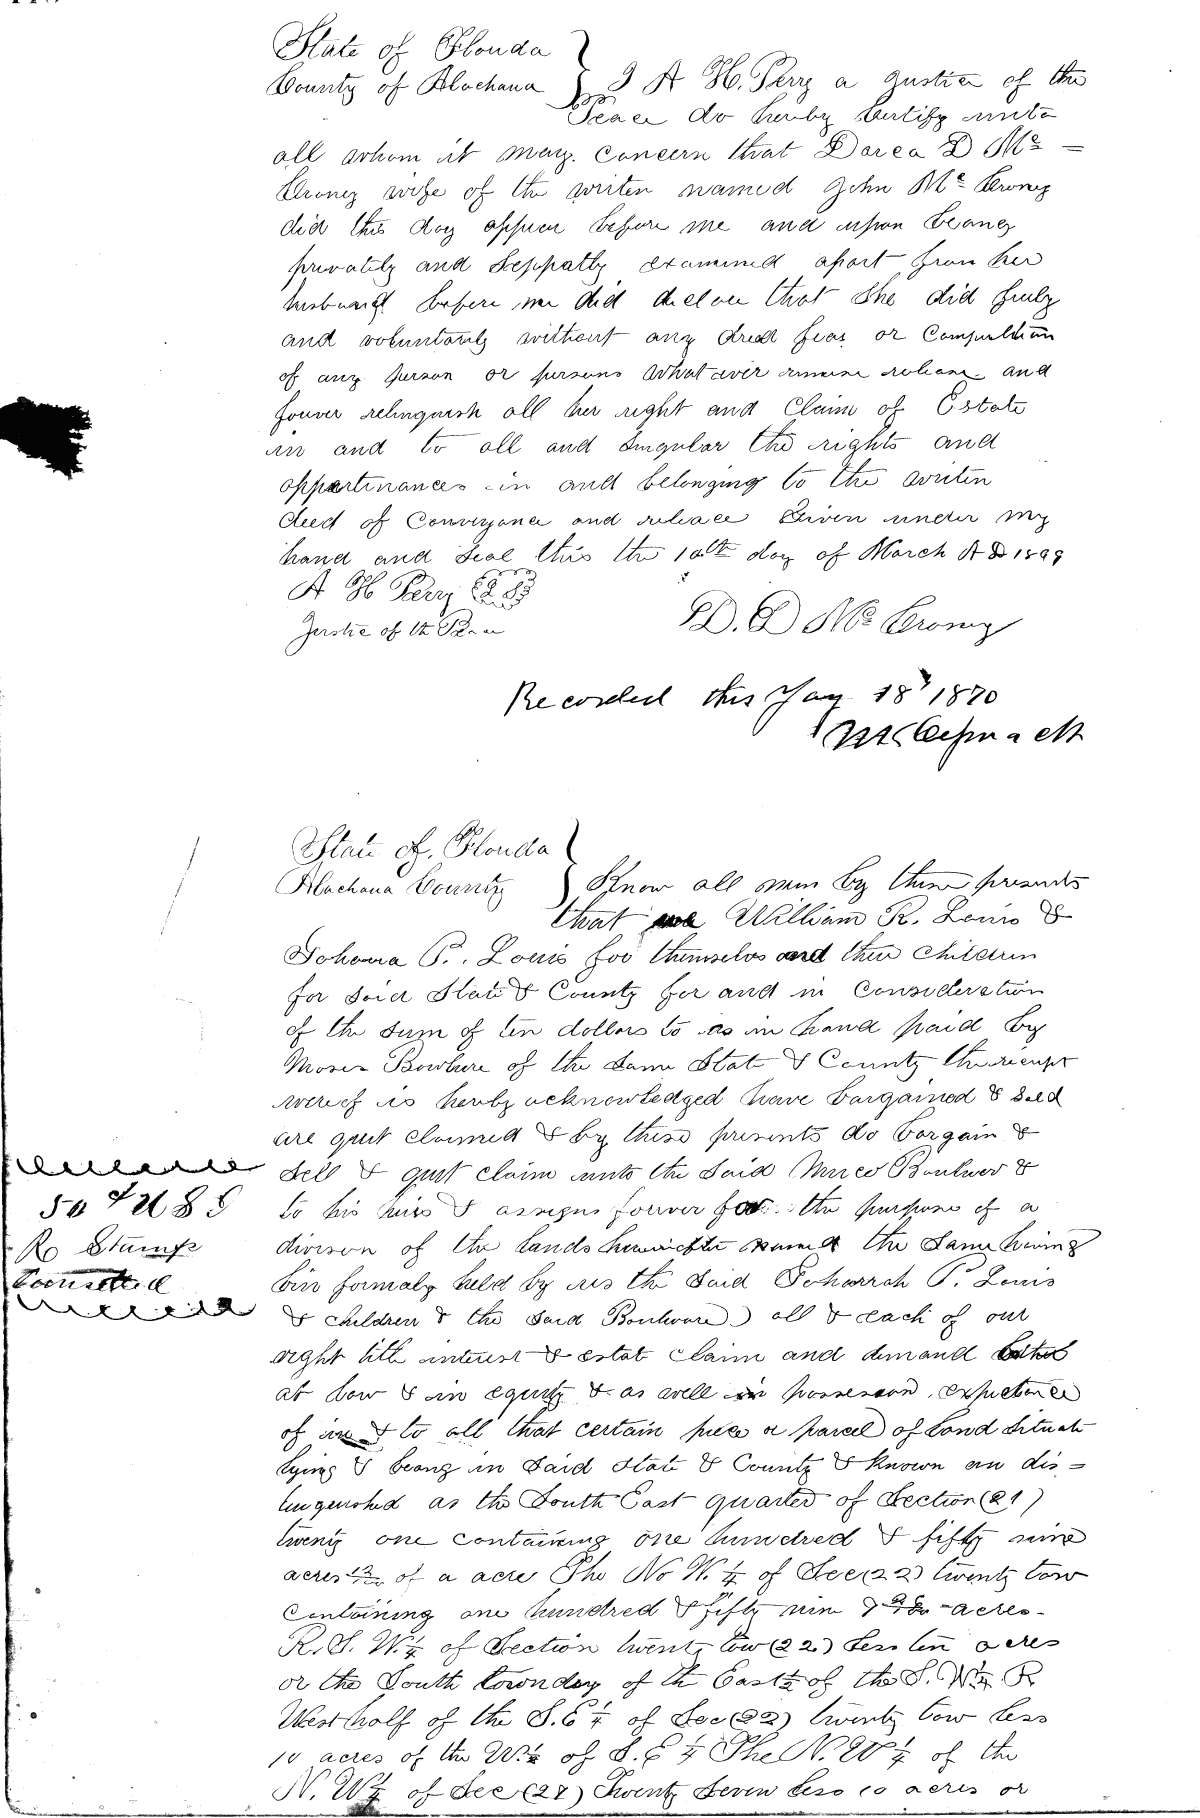 State of Florida
County of Alachaua } I A H. Perry a Justice of the
Peace do hereby Certify unto
all whom it may. Concern that Dorca D Mc =
Croney wife of the writen named John Mc Croney
did this day appear before me and upon beang
privately and Seppatly examined apart from her
husband before me did declare that She did freely
and voluntarily without any dred fear or Compultion
of any person or persons whatever remise release and
forever relinquish all her right and Claim of Estate
in and to all and Singular the rights and
appertinances in and belonging to the writen
deed of Conveyance and release Given under my
hand and Seal this the 10th day of March A D 1899
A H Perry
Justice of th Peace
D. D Mc Croney
Recorded this Jay 18 1870
State of. Florida
Alachaua County } Know all men by these presents
that William R. Louis &
P. Louis for themselvs and their Children
for Said State & County for and in Consideration
of the sum of ten dollars to us in hand paid by
Moses Bowlwre of the Same State & County the recupt
wereof is hereby acknowledged have bargained & Sold
are quit claimed & by these presents do bargain &
Sell & quit claim unto the Said Boulwer &
to his hiers & assigns forever for the purpose of a
divison of the lands named the Same having
bin formaly held by us the Said P. Louis
& children & the Said Boulware) all & each of our
right title interest & estate Claim and demand
at Low & in equity & as well in possession expectance
of in & to all that certain piece or parcel of Land Situate
lying & beang in Said State & County & known an dis =
tinguished as the South East quarter of Section (21)
twenty one containing one hundred & fifty nine
acres of a acre The No W. 1/4 of Sec (22) twenty tow
Containing one hundred & fifty nine & acres-
R. S. W. 1/4 of Section twenty tow (22) Less ten acres
or the South bownday of th East 1/2 of the S. W 1/4 R
West half of the S. E 1/4 of Sec (22) twenty tow less
10 acres of the W. 1/2 of S. E 1/4 The N. W 1/4 of the
N. W 1/4 of Sec (27) Twenty Seven Less 10 acres or
50 cts
R Stamp
Cancelled